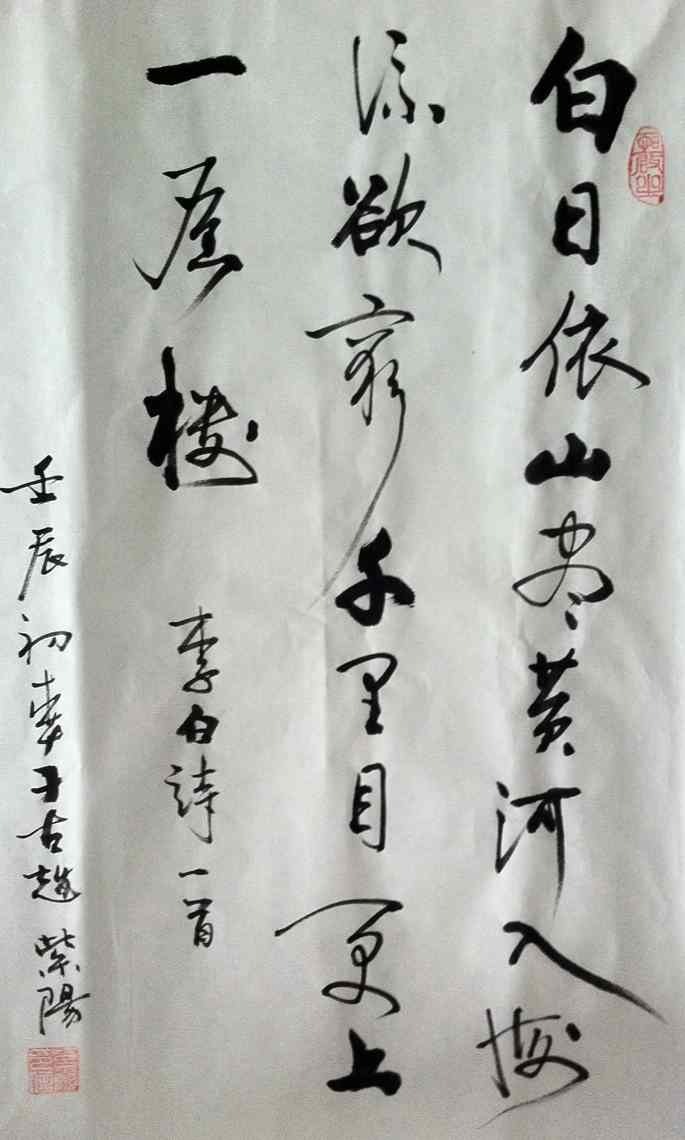 白日依山尽黄河入海
流欲穷千里目更上
一层楼
李白诗一首
壬辰初夏于古赵紫陽